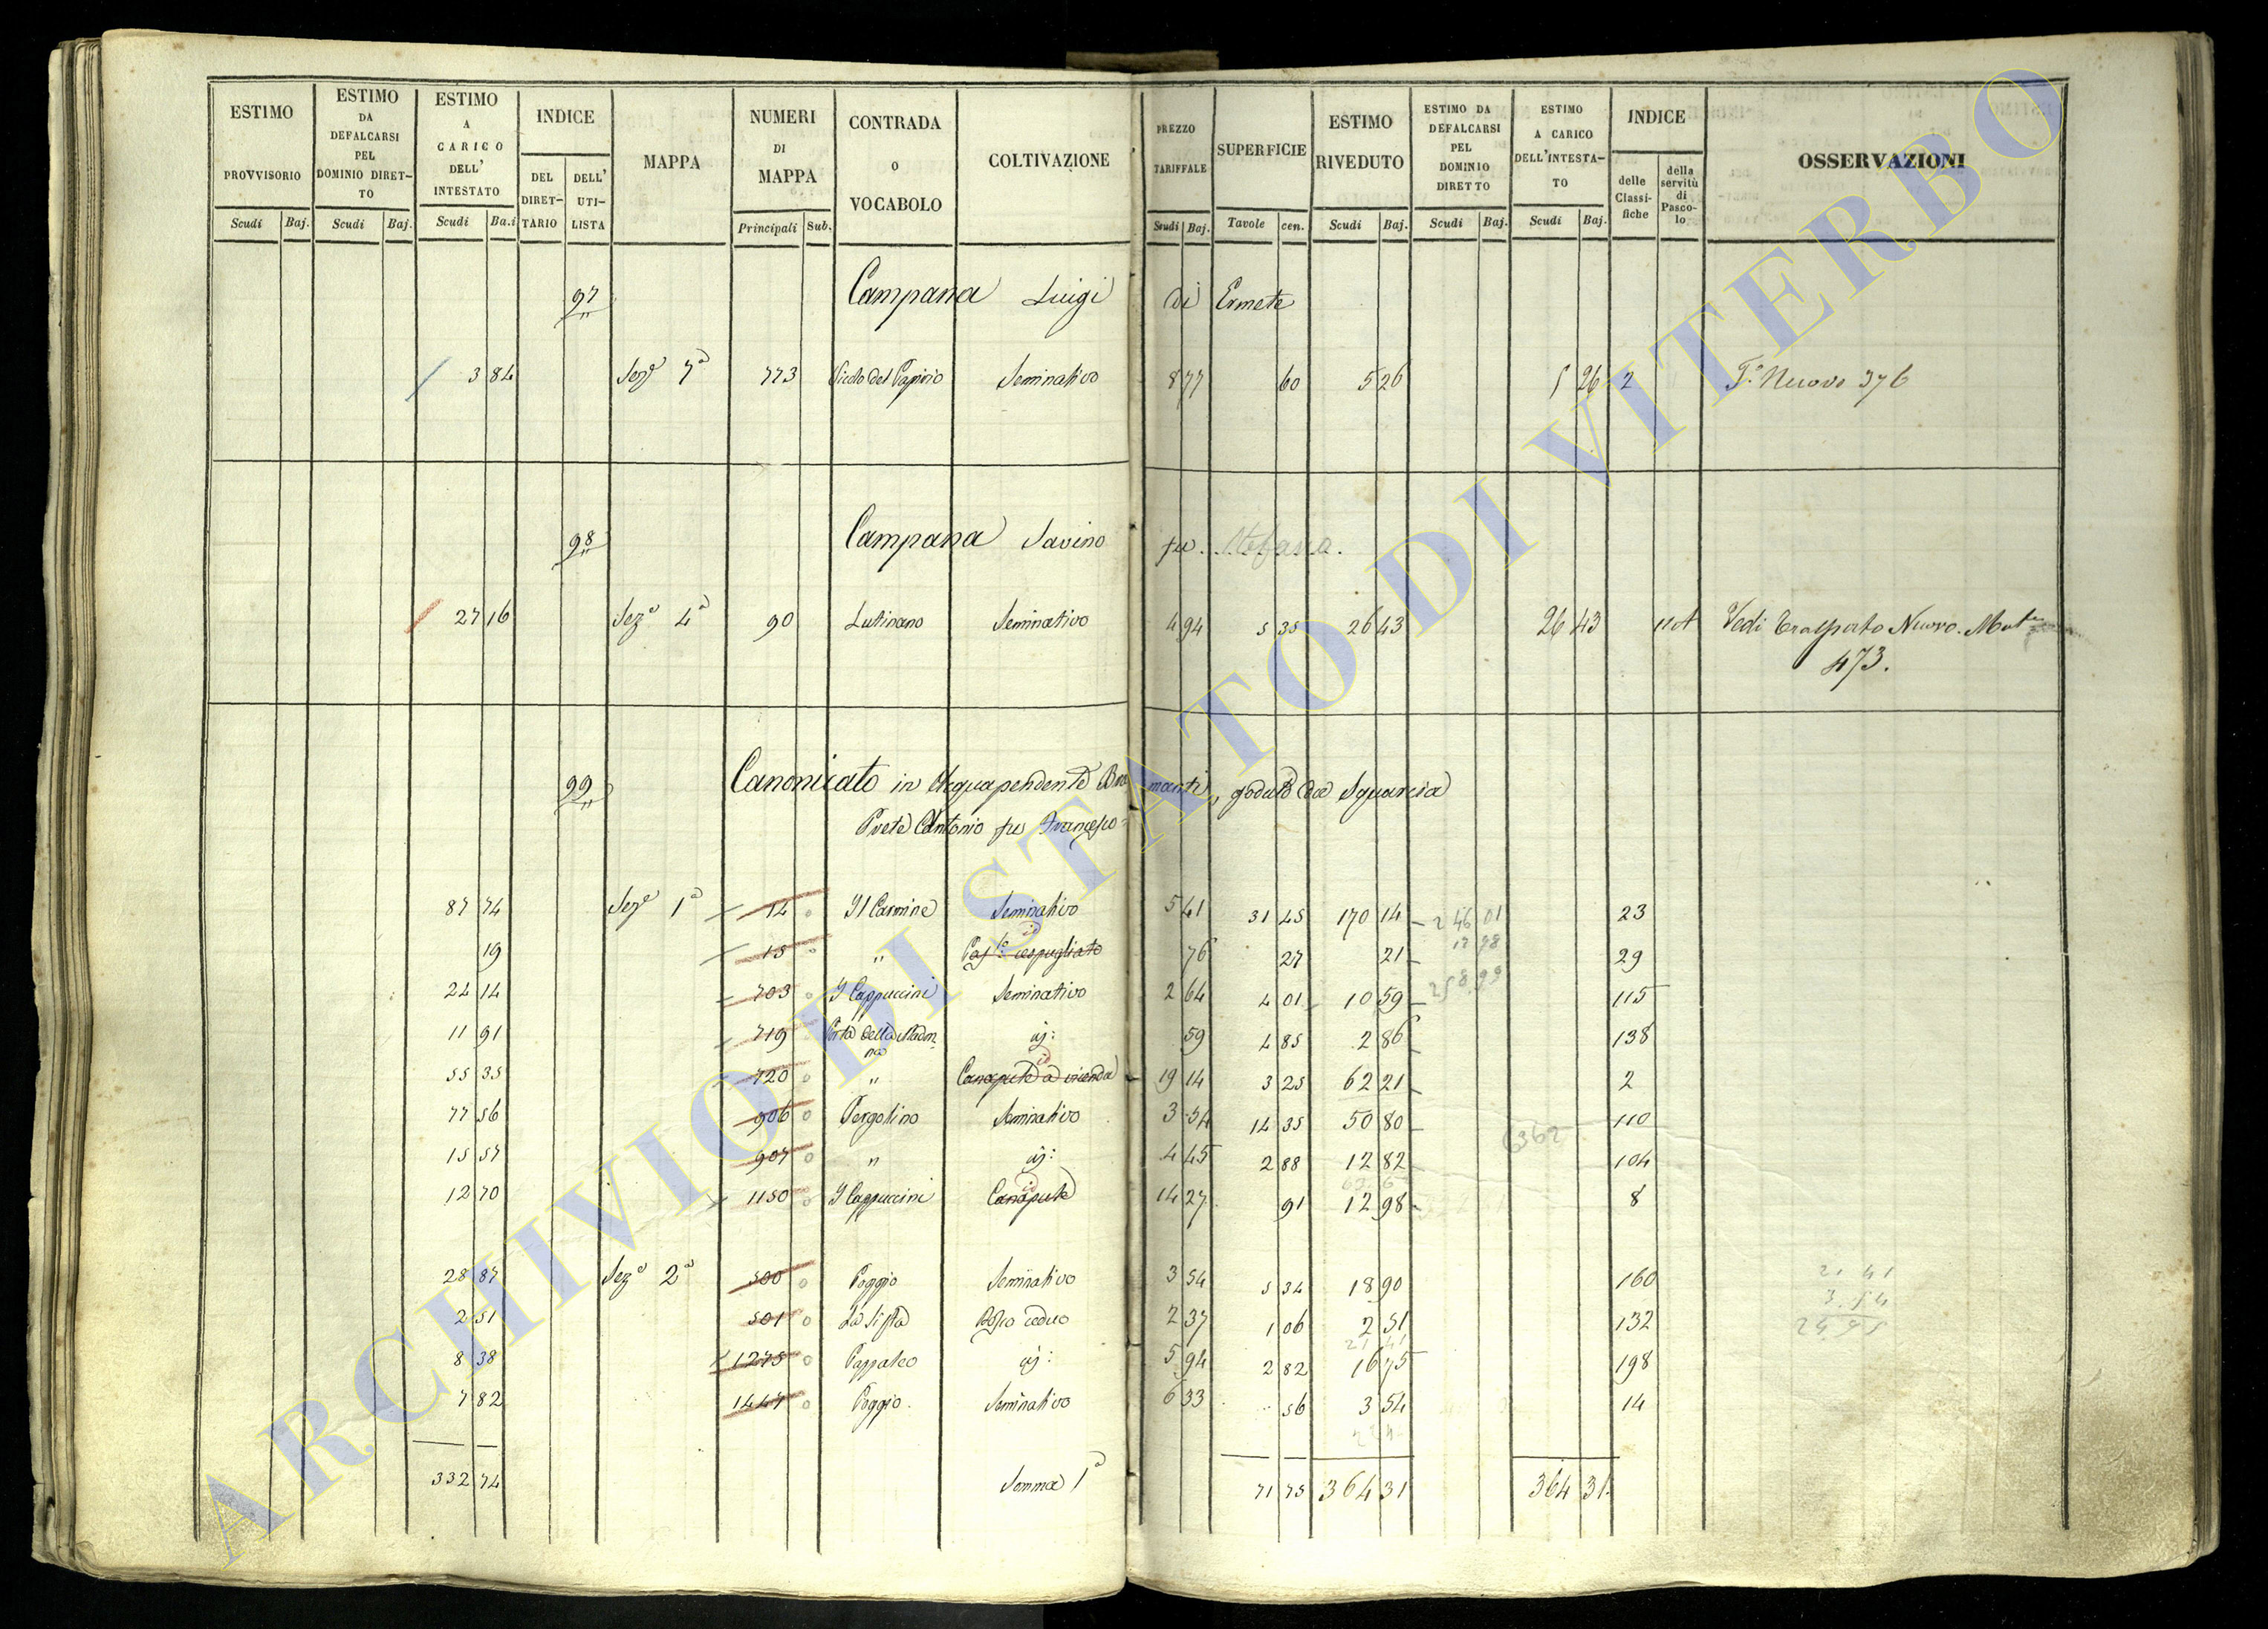 ESTIMO PROVVISORIO | ESTIMO DA DEFALCARSI PEL DOMINIO DIRETTO | ESTIMO A CARICO DELL' INTESTATO | INDICE | MAPPA | NUMERI DI MAPPA | CONTRADA O VOCABOLO | COLTIVAZIONE | PREZZO TARIFFALE | SUPERFICIE | ESTIMO RIVEDUTO | ESTIMO DA DEFALCARSI PEL DOMINIO DIRETTO | ESTIMO A CARICO DELL'INTESTATO | INDICE | OSSERVAZIONI
DEL DIRETTARIO | DELL' UTILISTA | delle Classifiche | della servitù di Pascolo
Scudi | Baj. | Scudi | Baj. | Scudi | Ba.i | Principali | Sub. | Scudi | Baj. | Tavole | cen. | Scudi | Baj. | Scudi | Baj. | Scudi | Baj.
97 Campana Luigi di Ermete
3 84 Seze 7a 773 Seminativo 8 77 60 5 26 5 26 2 To Nuovo 376
98 Campana Savino fu Stefano.
27 16 Seze 4a 90 Lutinano Seminativo 4 94 5 35 26 43 26 43 Vedi Trasporto Nuovo. Mat
473.
99 Canonicato in Acquapendente goduto da Squarcia
Prete Antonio fu Francesco
87 74 Seze 1a 14 Il Carmine Seminativo 5 41 31 45 170 14 246 01 23
19 15 " Pas.vo cespugliato 76 27 21 12 98 29
24 14 703 I Cappuccini Seminativo 2 64 4 01 10 59 258 99 115
11 91 719 Porta della Madonna id: 59 4 85 2 86 138
55 35 720 " Canapule a vicenda 19 14 3 25 62 21 2
77 56 906 Pergolino Seminativo 3 54 14 35 50 80 110
15 57 907 " id: 4 45 2 88 12 82 104
12 70 1150 I Cappuccini Canapule 14 27 91 12 98 8
28 87 Seze 2a 500 Poggio Seminativo 3 54 5 34 18 90 160
2 51 501 Bosco ceduo 2 37 1 06 2 51 132
8 38 1275 Pappaleo id: 5 94 2 82 16 75 198
7 82 1447 Poggio Seminativo 6 33 56 3 54 14
332 74 Somma 1a 71 75 364 31 364 31
21 41
3 54
ARCHIVIO DI STATO DI VITERBO